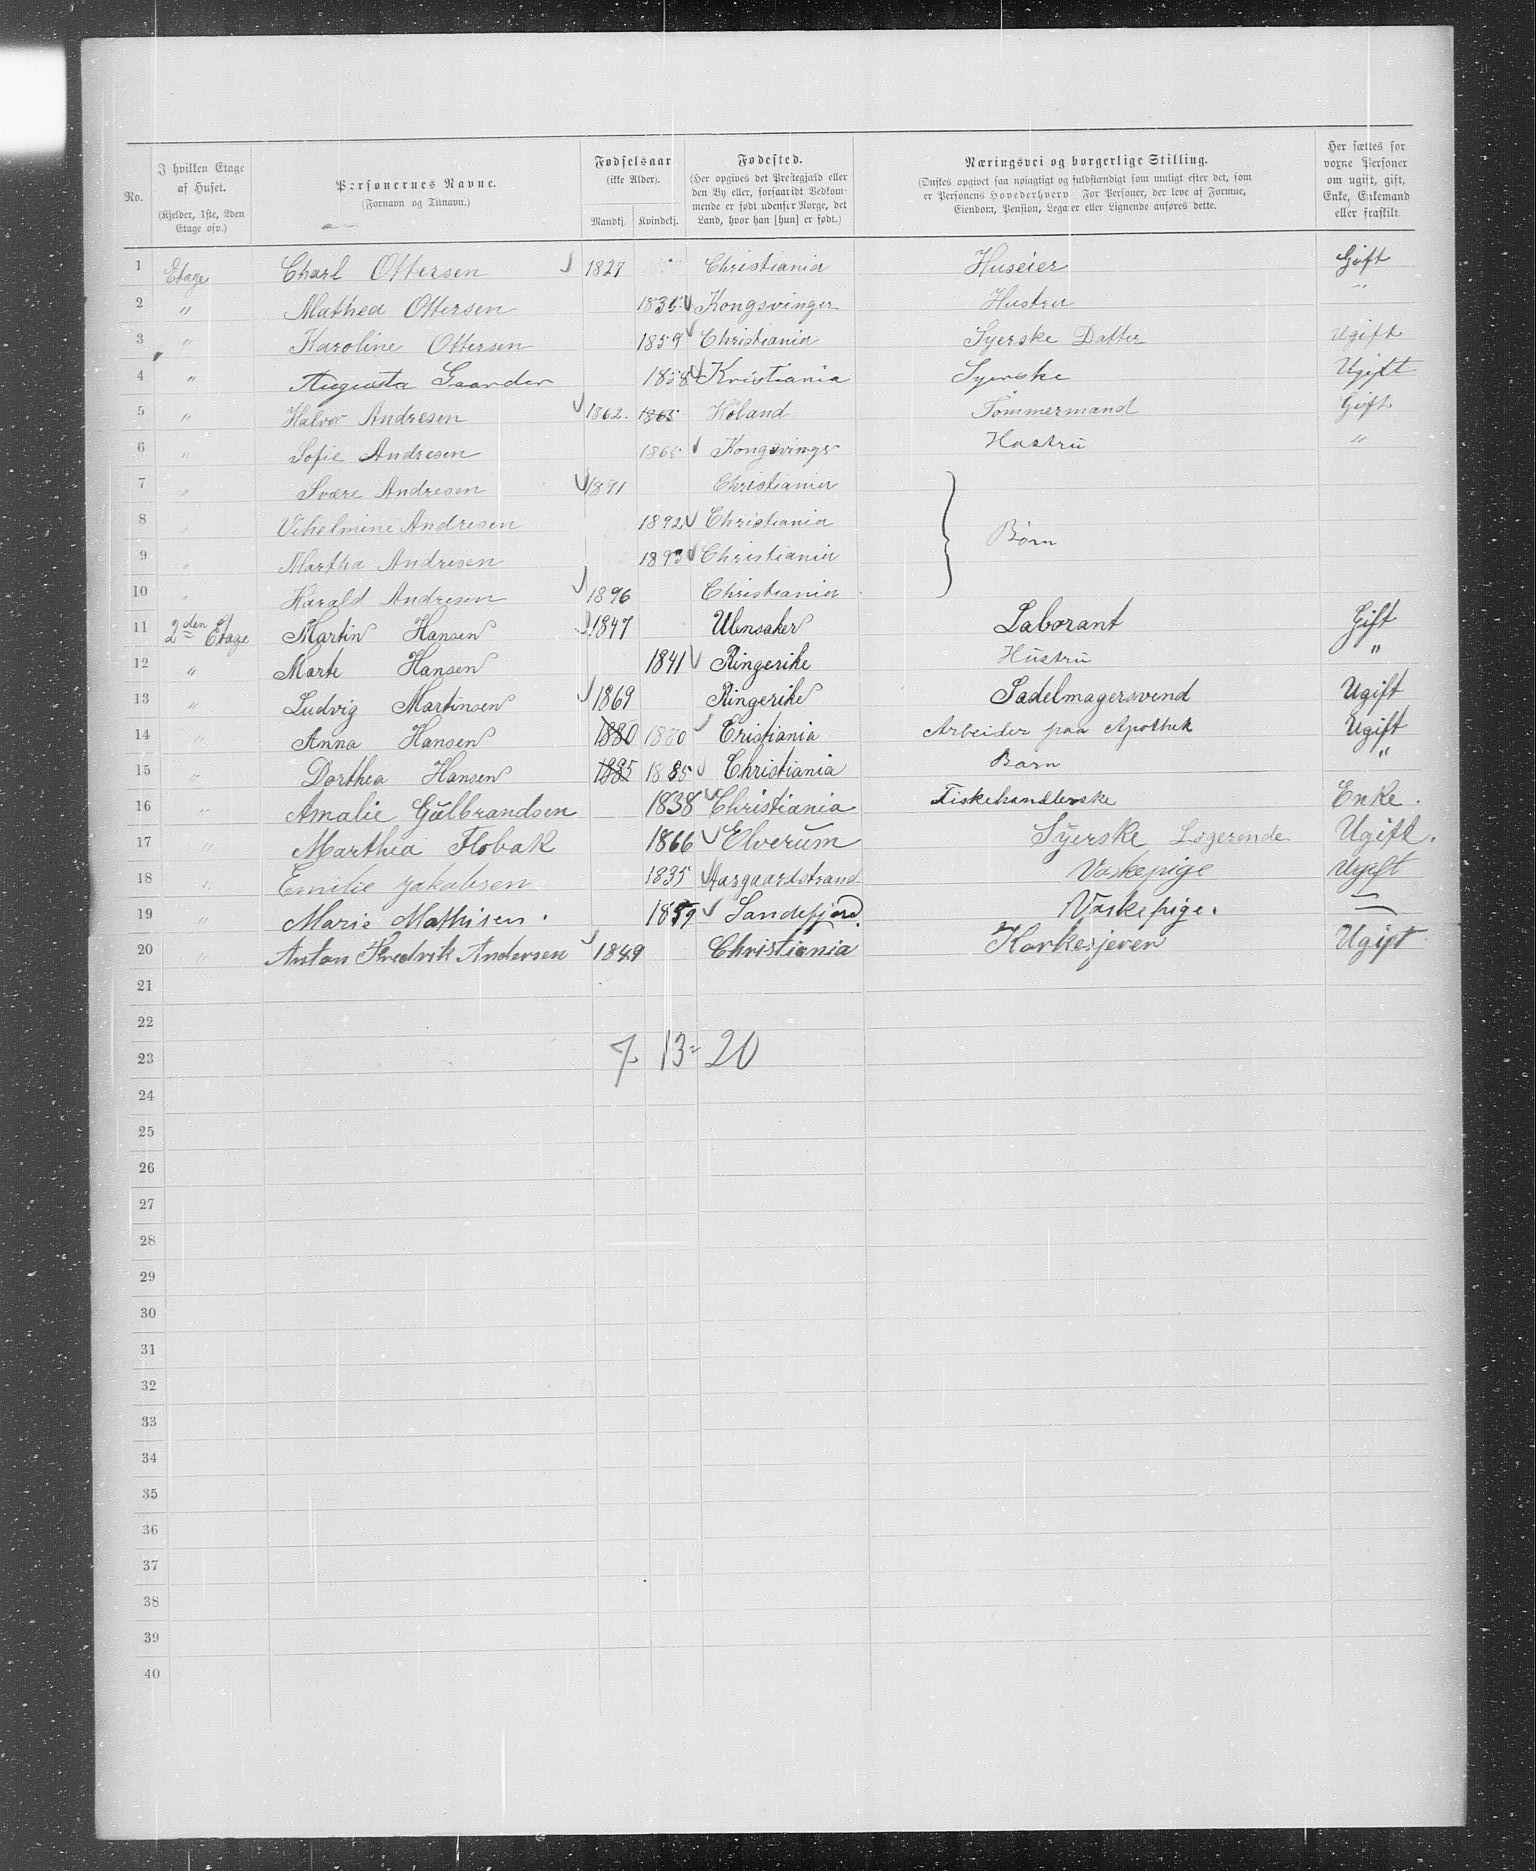 No.
I hvilken Etage af Huset. (Kjelder, 1ste, 2den Etage osv.)
Personernes Navne. (Fornavn og Tilnavn.)
Fødselsaar (ikke Alder). Mandkj. Kvindekj.
Fødested. (Her opgives det Prestegjæld eller den By eller, forsaavidt Vedkommende er født udenfor Norge, det Land, hvor han [hun] er født.)
Næringsvei og borgerlige Stilling. (Ønskes opgivet saa nøiagtigt og fuldstændigt som muligt efter det, som er Personens Hovederhverv. For Personer, der leve af Formue, Eiendom, Pension, Legater eller Lignende anføres dette.
Her sættes for voxne Personer om ugift, gift, Enke, Enkemand eller fraskilt.
1 Etage Charl Ottersen 1827 Christiania Huseier Gift
2 " Mathea Ottersen 1835 Kongsvinger Hustru "
3 " Karoline Ottersen 1859 Christiania Syerske Datter Ugift
4 " Augusta Gaarder 1858 Kristiania Syerske Ugift
5 " Halvor Andresen 1862. 1865 Høland Tømmermand Gift
6 " Sofie Andresen 1865 Kongsvinger Hustru "
7 " Svære Andresen 1891 Christiania
8 " Vihelmine Andresen 1892 Christiania Børn
9 " Martha Andresen 1893 Christiania
10 " Harald Andresen 1896 Christiania
11 2den Etage Martin Hansen 1847 Ulensaker Laborant Gift
12 " Marte Hansen 1841 Ringerike Hustru "
13 " Ludvig Martinsen 1869 Ringerike Sadelmagersvend Ugift
14 " Anna Hansen 1880 1880 Cristiania Arbeider paa Apothek Ugift
15 " Dorthea Hansen 1885 1885 Christiania Barn "
16 " Amalie Gulbrandsen 1838 Christiania Fiskehandlerske Enke.
17 " Marthea Flobak 1866 Elverum Syerske Logerende Ugift.
18 " Emilie Jakobsen 1835 Aasgaardstrand Vaskepige Ugift
19 " Marie Mathisen. 1859 Sandefjord. Vaskepige. —
20 " Anton Fredrik Andersen 1849 Christiania Korkesjerer Ugift
21
22
23 7. 13 = 20
24
25
26
27
28
29
30
31
32
33
34
35
36
37
38
39
40